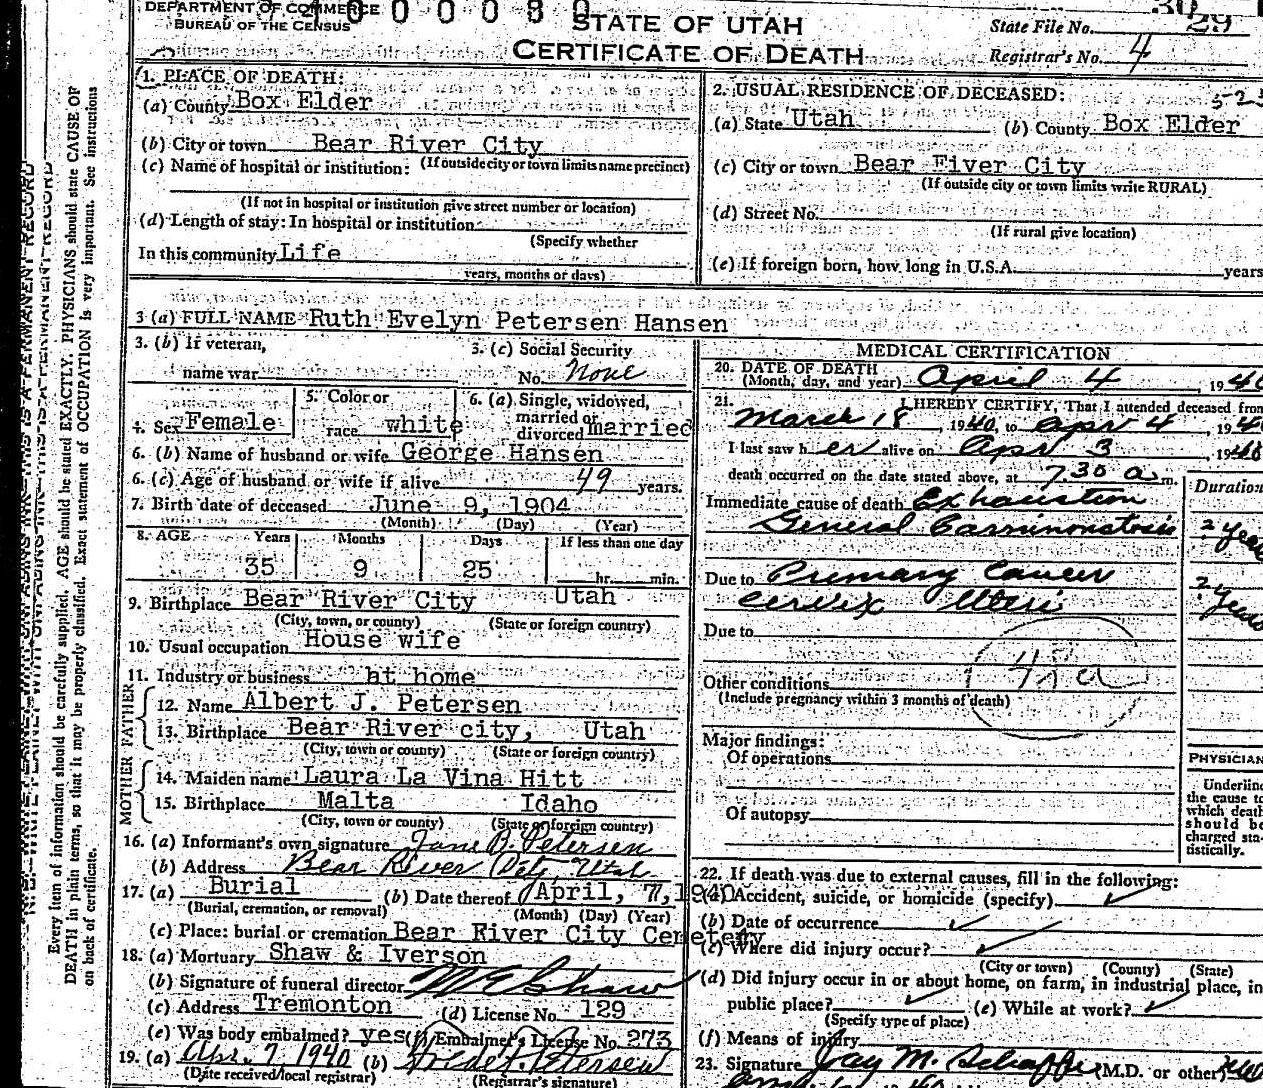 DEPARTMENT OF COMMERCE
BUREAU OF THE CENSUS
STATE OF UTAH
CERTIFICATE OF DEATH
State File No. 29
Registrar's No. 4
Every item of information should be carefully supplied. AGE should be stated EXACTLY. PHYSICIANS should state CAUSE OF
DEATH in plain terms, so that it may be properly classified. Exact statement of OCCUPATION is very important. See instructions
on back of certificate.
1. PLACE OF DEATH:
(a) County Box Elder
(b) City or town Bear River City
(If outside city or town limits name precinct)
(c) Name of hospital or institution:
(If not in hospital or institution give street number or location)
(d) Length of stay: In hospital or institution
(Specify whether
In this community Life
years, months or days)
2. USUAL RESIDENCE OF DECEASED:
(a) State Utah (b) County Box Elder
(c) City or town Bear Fiver City
(If outside city or town limits write RURAL)
(d) Street No.
(If rural give location)
(e) If foreign born, how long in U.S.A. years
3 (a) FULL NAME Ruth Evelyn Petersen Hansen
3. (b) If veteran,
name war
3. (c) Social Security
No. None
4. Sex Female
5. Color or
race white
6. (a) Single, widowed,
married or
divorced married
6. (b) Name of husband or wife George Hansen
6. (c) Age of husband or wife if alive 49 years.
7. Birth date of deceased June 9, 1904
(Month) (Day) (Year)
8. AGE Years Months Days If less than one day
35 9 25 hr. min.
9. Birthplace Bear River City Utah
(City, town, or county) (State or foreign country)
10. Usual occupation House wife
11. Industry or business at home
FATHER
12. Name Albert J. Petersen
13. Birthplace Bear River city, Utah
(City, town or county) (State or foreign country)
MOTHER
14. Maiden name Laura La Vina Hitt
15. Birthplace Malta Idaho
(City, town or county) (State or foreign country)
16. (a) Informant's own signature Jane D. Petersen
(b) Address Bear River City, Utah
17. (a) Burial (b) Date thereof April, 7, 1940
(Burial, cremation, or removal) (Month) (Day) (Year)
(c) Place: burial or cremation Bear River City Cemetery
18. (a) Mortuary Shaw & Iverson
(b) Signature of funeral director M E Shaw
(c) Address Tremonton (d) License No. 129
(e) Was body embalmed? yes (f) Embalmer's License No. 273
19. (a) Apr. 7 1940 (b) Petersen
(Date received local registrar) (Registrar's signature)
MEDICAL CERTIFICATION
20. DATE OF DEATH
(Month, day, and year) April 4, 1940
21. I HEREBY CERTIFY, That I attended deceased from
March 18, 1940, to Apr 4, 1940
I last saw her alive on Apr 3, 1940
death occurred on the date stated above, at 7.30 a m.
Duration
Immediate cause of death Exhaustion
General Carcinomatosis ? years
Due to Primary Cancer
Cervix Uteri ? years
Due to
48a
Other conditions
(Include pregnancy within 3 months of death)
Major findings:
Of operations
Of autopsy
PHYSICIAN
Underline
the cause to
which death
should be
charged sta-
tistically.
22. If death was due to external causes, fill in the following:
(a) Accident, suicide, or homicide (specify) ✓
(b) Date of occurrence ✓
(c) Where did injury occur? ✓
(City or town) (County) (State)
(d) Did injury occur in or about home, on farm, in industrial place, in
public place? ✓ (e) While at work? ✓
(Specify type of place)
(f) Means of injury
23. Signature Jay M. Schaffer M.D. or other